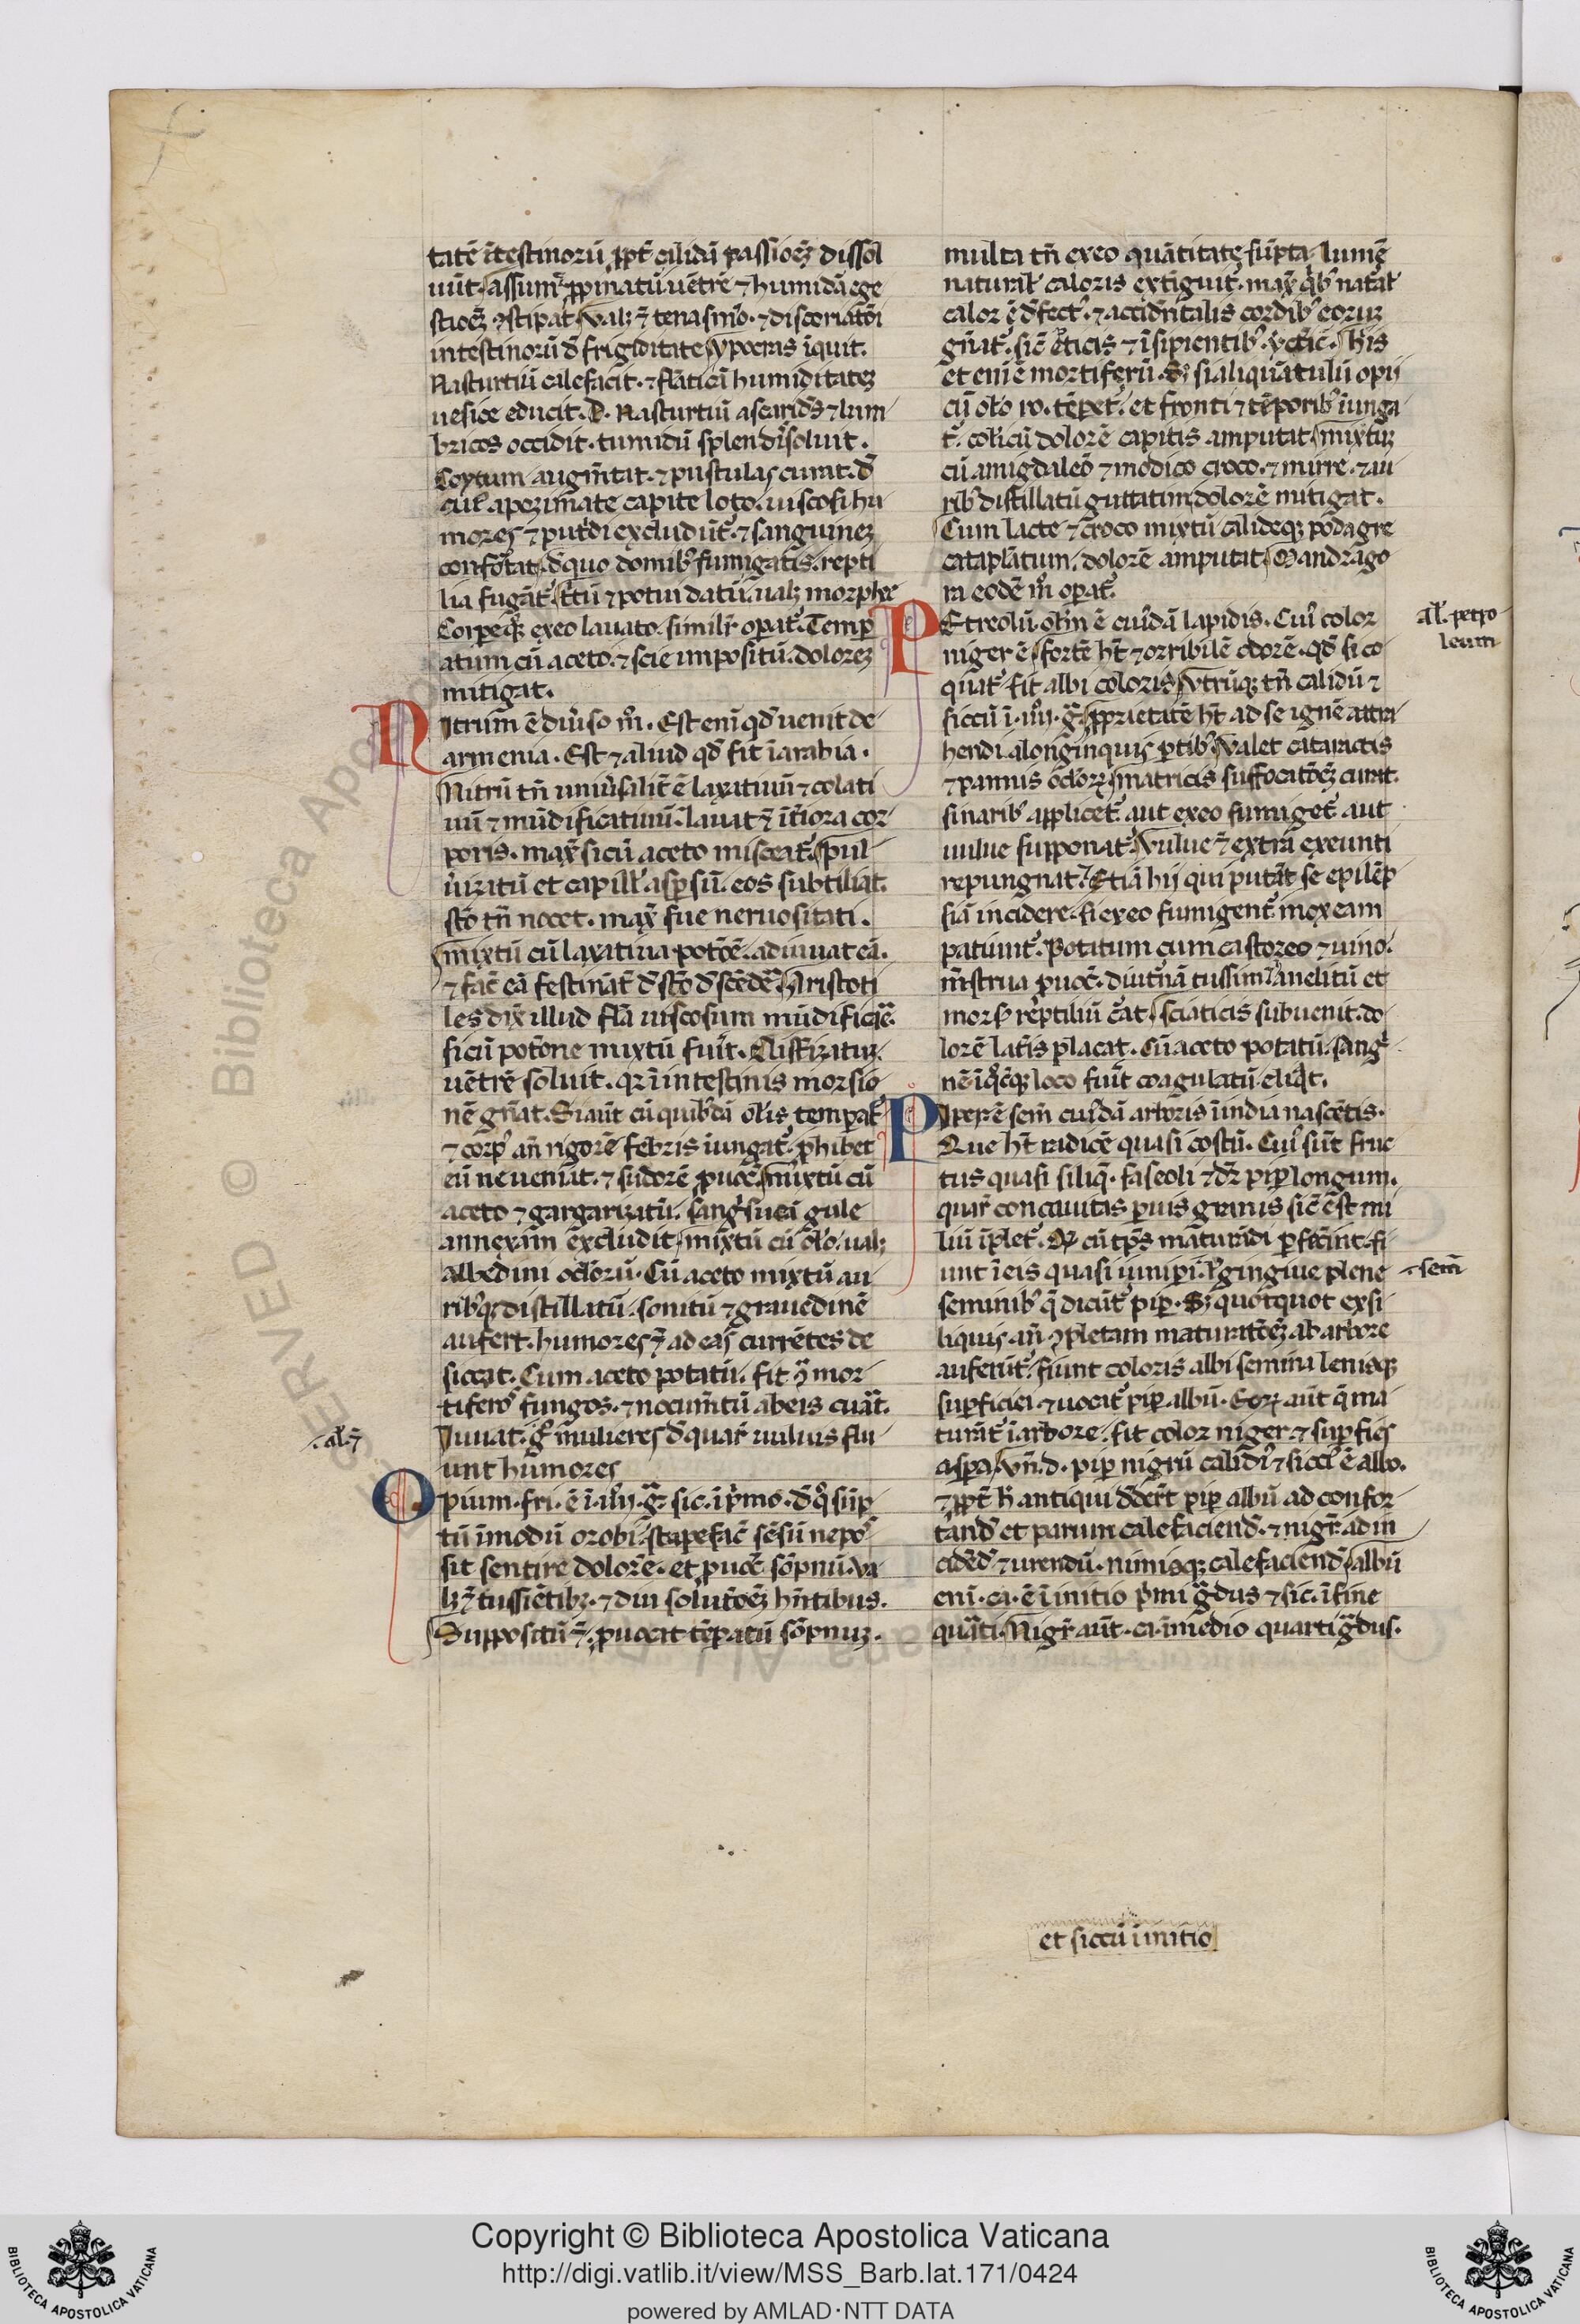 tatē ītestinorū ꝓpt̄ calidā passiōeʒ dissol
uūt. assum̄ ꝓpinatū uētrē ⁊ humidā ege
stiōeʒ ↄstipat. valꝫ ⁊̄ tenasmō. ⁊ discoriatōi
intestinorū d̄ frigiditate. ypocras īquit.
Nasturtiū calefacit. ⁊ flāticū humiditateʒ
uesice educit. D. Nasturtiū ascarid̄s ⁊ lum
bricos occidit. tumidū splen d̄soluit.
Coytum augm̄tat. ⁊ pustulas curat. d̄
cuiꝰ apozimate capite loto. uiscosi hu
mores ⁊ put̄di excludūt̄. ⁊ sanguineʒ
confōtat. d̄ quo domibꝰ fumigatis. repti
lia fugāt̄. t̄tū ⁊ potui datū. ualꝫ morphee
Corpeqꝫ exeo lauato. similr̄ oꝑat̄. Temꝑ
atum cū aceto. ⁊ scie impositū. doloreʒ
mitigat.
Nitrum ē diuso m̄. Est enī qd̄ uenit de
armenia. Est ⁊ aliud qd̄ fit ī arabia.
Nitrū tn̄ uniūsalit̄ ē laxatiuū ⁊ colati
uū ⁊ mūdificatiuū. lauat ⁊̄ īt̄iora cor
poris. max̄ si cū aceto misceat̄. pul
ūizatū et capill̄ asꝑsū. eos subtiliat.
sto tn̄ nocet. max̄ sue neruositati.
mixtū cū laxatiua potōe. adiuuat eā.
⁊ fac̄ eā festināt̄ d̄ sto d̄scēdē. Aristoti
les dix̄ illud flā uiscosum mūdificāē.
si cū potione mixtū fuīt.
uētrē soluit. qꝛ ī intestinis morsio
nē gn̄at. Si aūt cū quibꝰdā olīs temꝑat̄
⁊ corpꝰ añ rigorē febris īungat̄. ꝓhibet
eū ne ueniat. ⁊ sudorē ꝓuoc̄. mixtū cū
aceto ⁊ gargarizatū. sanḡsuam gule
annexam excludit. mixtū cū olō. ualꝫ
albedini oclorū. Cū aceto mixtū au
ribꝰqꝫ distillatū. sonitū ⁊ grauedinē
aufert. humores ⁊̄ ad eas currētes de
siccat. Cum aceto potatū. fit ↄ̄ mor
tiferos fungos. ⁊ nocum̄tū ab eis cuāt.
al. ⁊̄
Iuuat. ḡ mulieres d̄ quar̄ uuluis flu
unt humores
Opium. fri. ē ī. iiij. gͣ. sic. ī p̄mo. d̄ qͦ sūp
tū ī modū orobi. stupefac̄ sēsū ne pos
sit sentire dolorē. et ꝓuoc̄ sōpnū. va
lꝫ ⁊̄ tussiētibꝫ. ⁊ diu solutōeʒ hn̄tibus.
Suppositū ⁊̄. ꝓuocat tēꝑatū sōpnuʒ.
multa tn̄ exeo quātitate sūpta. lumē
naturał caloris extīguit̄. max̄ qͥbꝰ natał
calor ē d̄fectꝰ. ⁊ accidn̄talis cordibꝰ eorum
gn̄at̄. sic̄ eticis ⁊ īsipientibꝰ. yctic̄. his
et eniē mortiferū. Sꝫ si aliquātulū opij
cū olō ro. tēꝑet̄. et fronti ⁊ tēporibꝰ īunga
t̄. colicū dolorē capitis amputat. mixtuʒ
cū amigdaleō ⁊ modico croco. ⁊ mirre. ⁊ au
ribꝰ distillatū guttatim. dolorē mitigat.
Cum lacte ⁊ croco mixtū calideqꝫ podagre
cataplātum. dolorē amputat. Mandrago
ra eodē m̄ oꝑat̄.
Petreolū. olm̄ ē cuīdā lapidis. Cuiꝰ color
al. petro
leum
niger ē. fortē hꝫ ⁊ orribilē odorē. qd̄ si co
quat̄ fit albi coloris. vtrūqꝫ tn̄ calidū ⁊
siccū ī. iiij. gͣ. ꝓprietatē hꝫ ad se ignē attra
hendi. alonginquis ꝑtibꝰ. Valet cataractis
⁊ pannis oclorꝝ. matricis suffocatōeʒ curat.
si naribꝰ applicet̄. aut exeo fumiget̄ aut
uulue supponat̄. vulue ⁊̄ extra exeunti
repungnat. Etiā hij qui putāt se epilēp
siā incidere. si exeo fumigent̄ mox eam
patiunt̄. Potatum cum castoreo ⁊ uino.
m̄strua ꝓuoc̄. diut̄nā tussim. anelitū et
morsꝰ reptiliū c̄at. sciaticis subuenit. do
lorē lat̄is placat. Cū aceto potatū. sanḡ
nē ī qͦcūqꝫ loco fuīt coagulatū. eliqͣt.
Piꝑ ē sem̄ cuīdā arboris ī india nascētis.
Que hꝫ radicē quasi costū. Cuiꝰ sūt fruc
tus quasi siliq̄. faseoli ⁊ dr̄ piꝑ longum.
quar̄ concauitas ꝑuis granis sic̄ ē st mi
liū īplet̄. cū tp̄s maturādi ꝑfecīnt. fi
unt ī eis quasi iuniꝑi. gingiue plene
sem̄
seminibꝰ q̄ dicūt̄ piꝑ. Sꝫ quotquot exsi
liquis. añ ↄpletam maturitōeʒ ab arbore
auferūt̄. fiunt coloris albi semina leniqꝫ
suꝑficiei. ⁊ uocāt̄ piꝑ albū. Eorꝝ aūt q̄ ma
turāt̄ ī arbore. fit color niger. ⁊ suꝑficiēs
asꝑa. vn̄. d. piꝑ nigrū calidiꝰ ⁊ sicciꝰ ē albo.
⁊ ꝓpt̄ h̄ antiqui d̄dert piꝑ albū ad confor
tand̄ et parum calefaciend̄. ⁊ nigr̄. ad in
cidēd̄ ⁊ urendū. nimisqꝫ calefaciend̄. albū
enī. ca. ē ī initio p̄mi gͣdus ⁊ sic. ī fine
quāti. Nigr̄ aūt. ca. ī medio quarti gͣdus.
et siccū ī initio
Copyright © Biblioteca Apostolica Vaticana
http://digi.vatlib.it/view/MSS_Barb.lat.171/0424
powered by AMLAD · NTT DATA
BIBLIOTECA APOSTOLICA VATICANA
BIBLIOTECA APOSTOLICA VATICANA